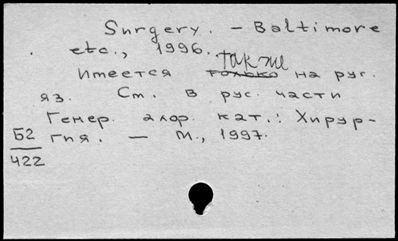 Surgery. – Baltimore
etc., 1996.
также
Имеется только на рус.
яз. См. в рус. части
Генер. алф. кат.: Хирур-
гия. – М., 1997.
Б2
422